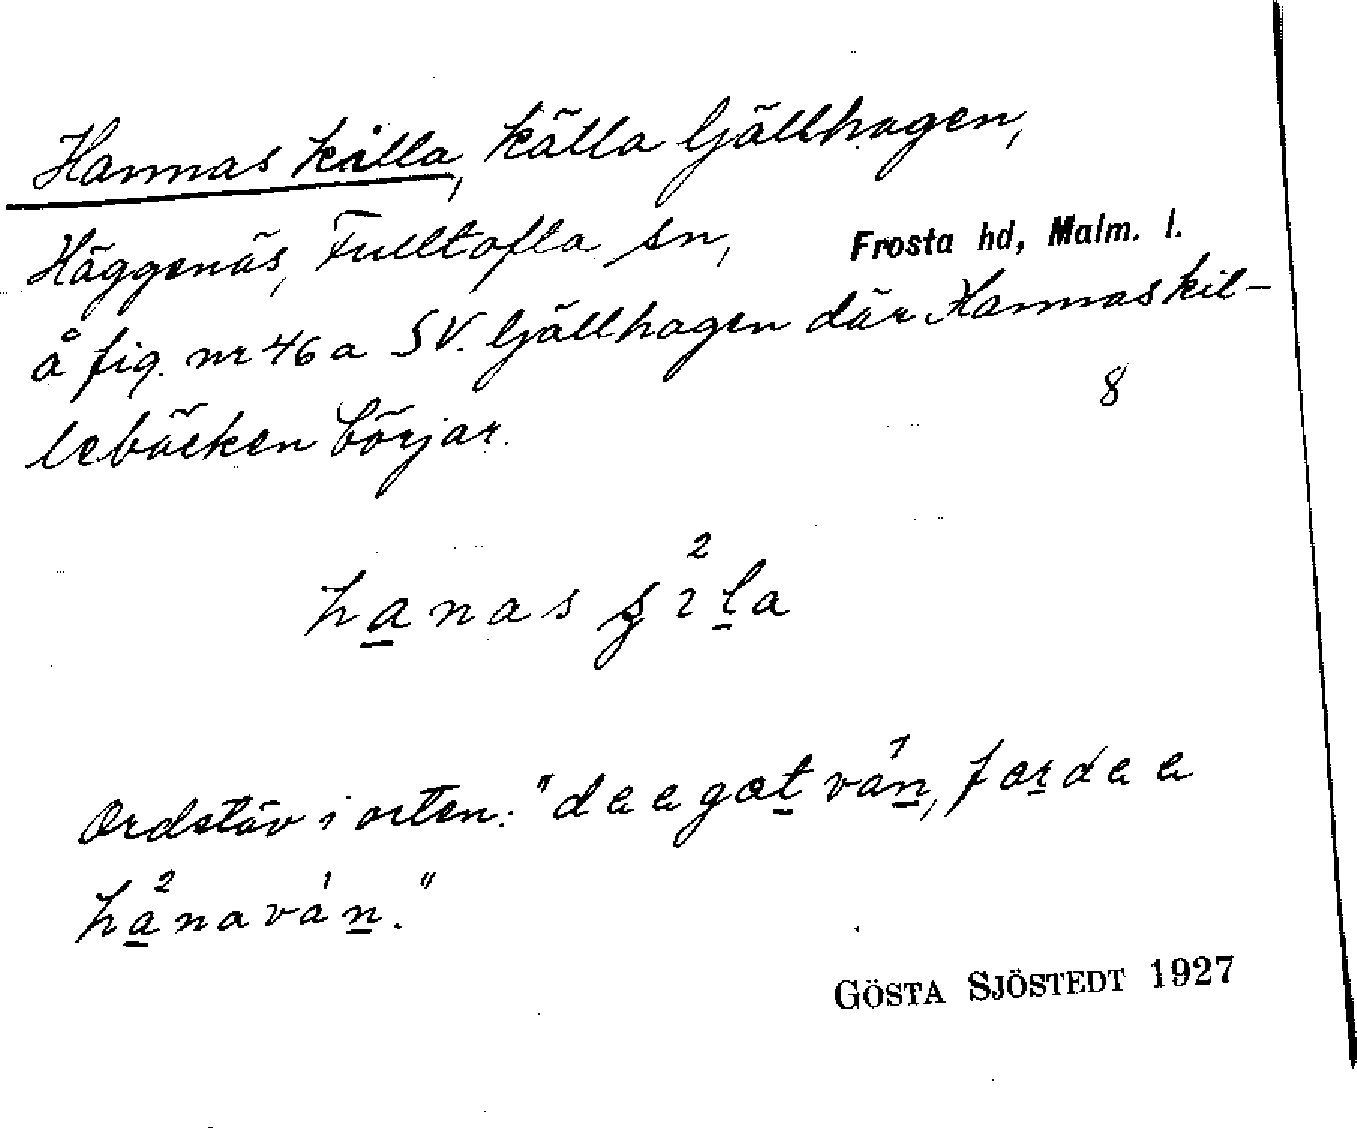 Hannas killa, källa Ljällhagen,
Häggenäs, Fulltofta sn, Frosta hd, Malm. l.
å fig. nr 46a SV. Ljällhagen där Hannaskil-
lebäcken börjar.
8
Ordstäv i orten: "de e gat van, for de e
hanavan."
GÖSTA SJÖSTEDT 1927